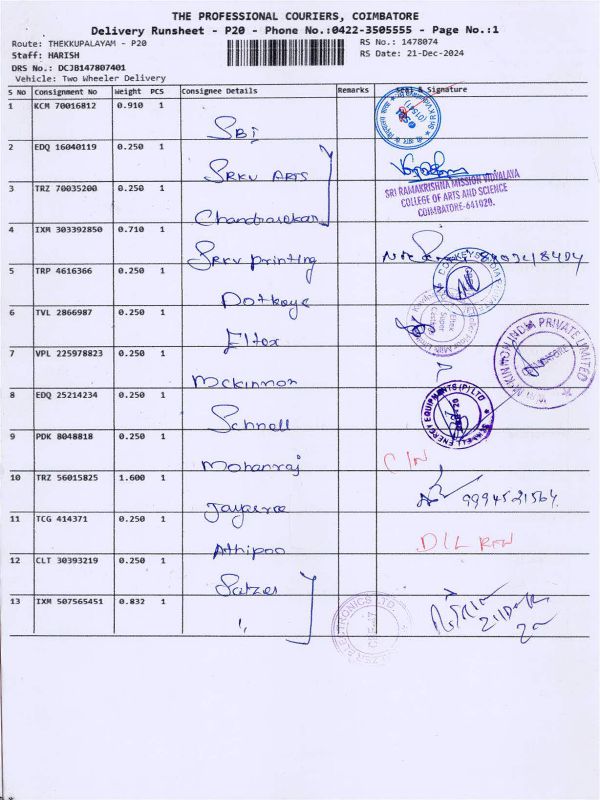 THE PROFESSIONAL COURIERS, COIMBATORE
Delivery Runsheet - P20 - Phone No.:0422-3505555 - Page No.:1
Route: THEKKUPALAYAM - P20
RS No.: 1478074
Staff: HARISH
RS Date: 21-Dec-2024
DRS No.: DCJB147807401
Vehicle: Two Wheeler Delivery
S No Consignment No Weight PCS Consignee Details Remarks Seal & Signature
1 KCM 70016812 0.910 1
SBI
2 EDQ 16040119 0.250 1
SRKV ARTS
SRI RAMAKRISHNA MISSION VIDYALAYA
COLLEGE OF ARTS AND SCIENCE
COIMBATORE-641020.
3 TRZ 70035200 0.250 1
Chandrasekar
4 IXM 303392850 0.710 1
Srkv printing
5 TRP 4616366 0.250 1
Dotkeys
6 TVL 2866987 0.250 1
Eltex
7 VPL 225978823 0.250 1
Mckinnon
8 EDQ 25214234 0.250 1
Schnell
9 PDK 8048818 0.250 1
Mohanraj
C/N
10 TRZ 56015825 1.600 1
9994521564
11 TCG 414371 0.250 1
Athipoo
D/L
12 CLT 30393219 0.250 1
Salzer
13 IXM 507565451 0.832 1
"